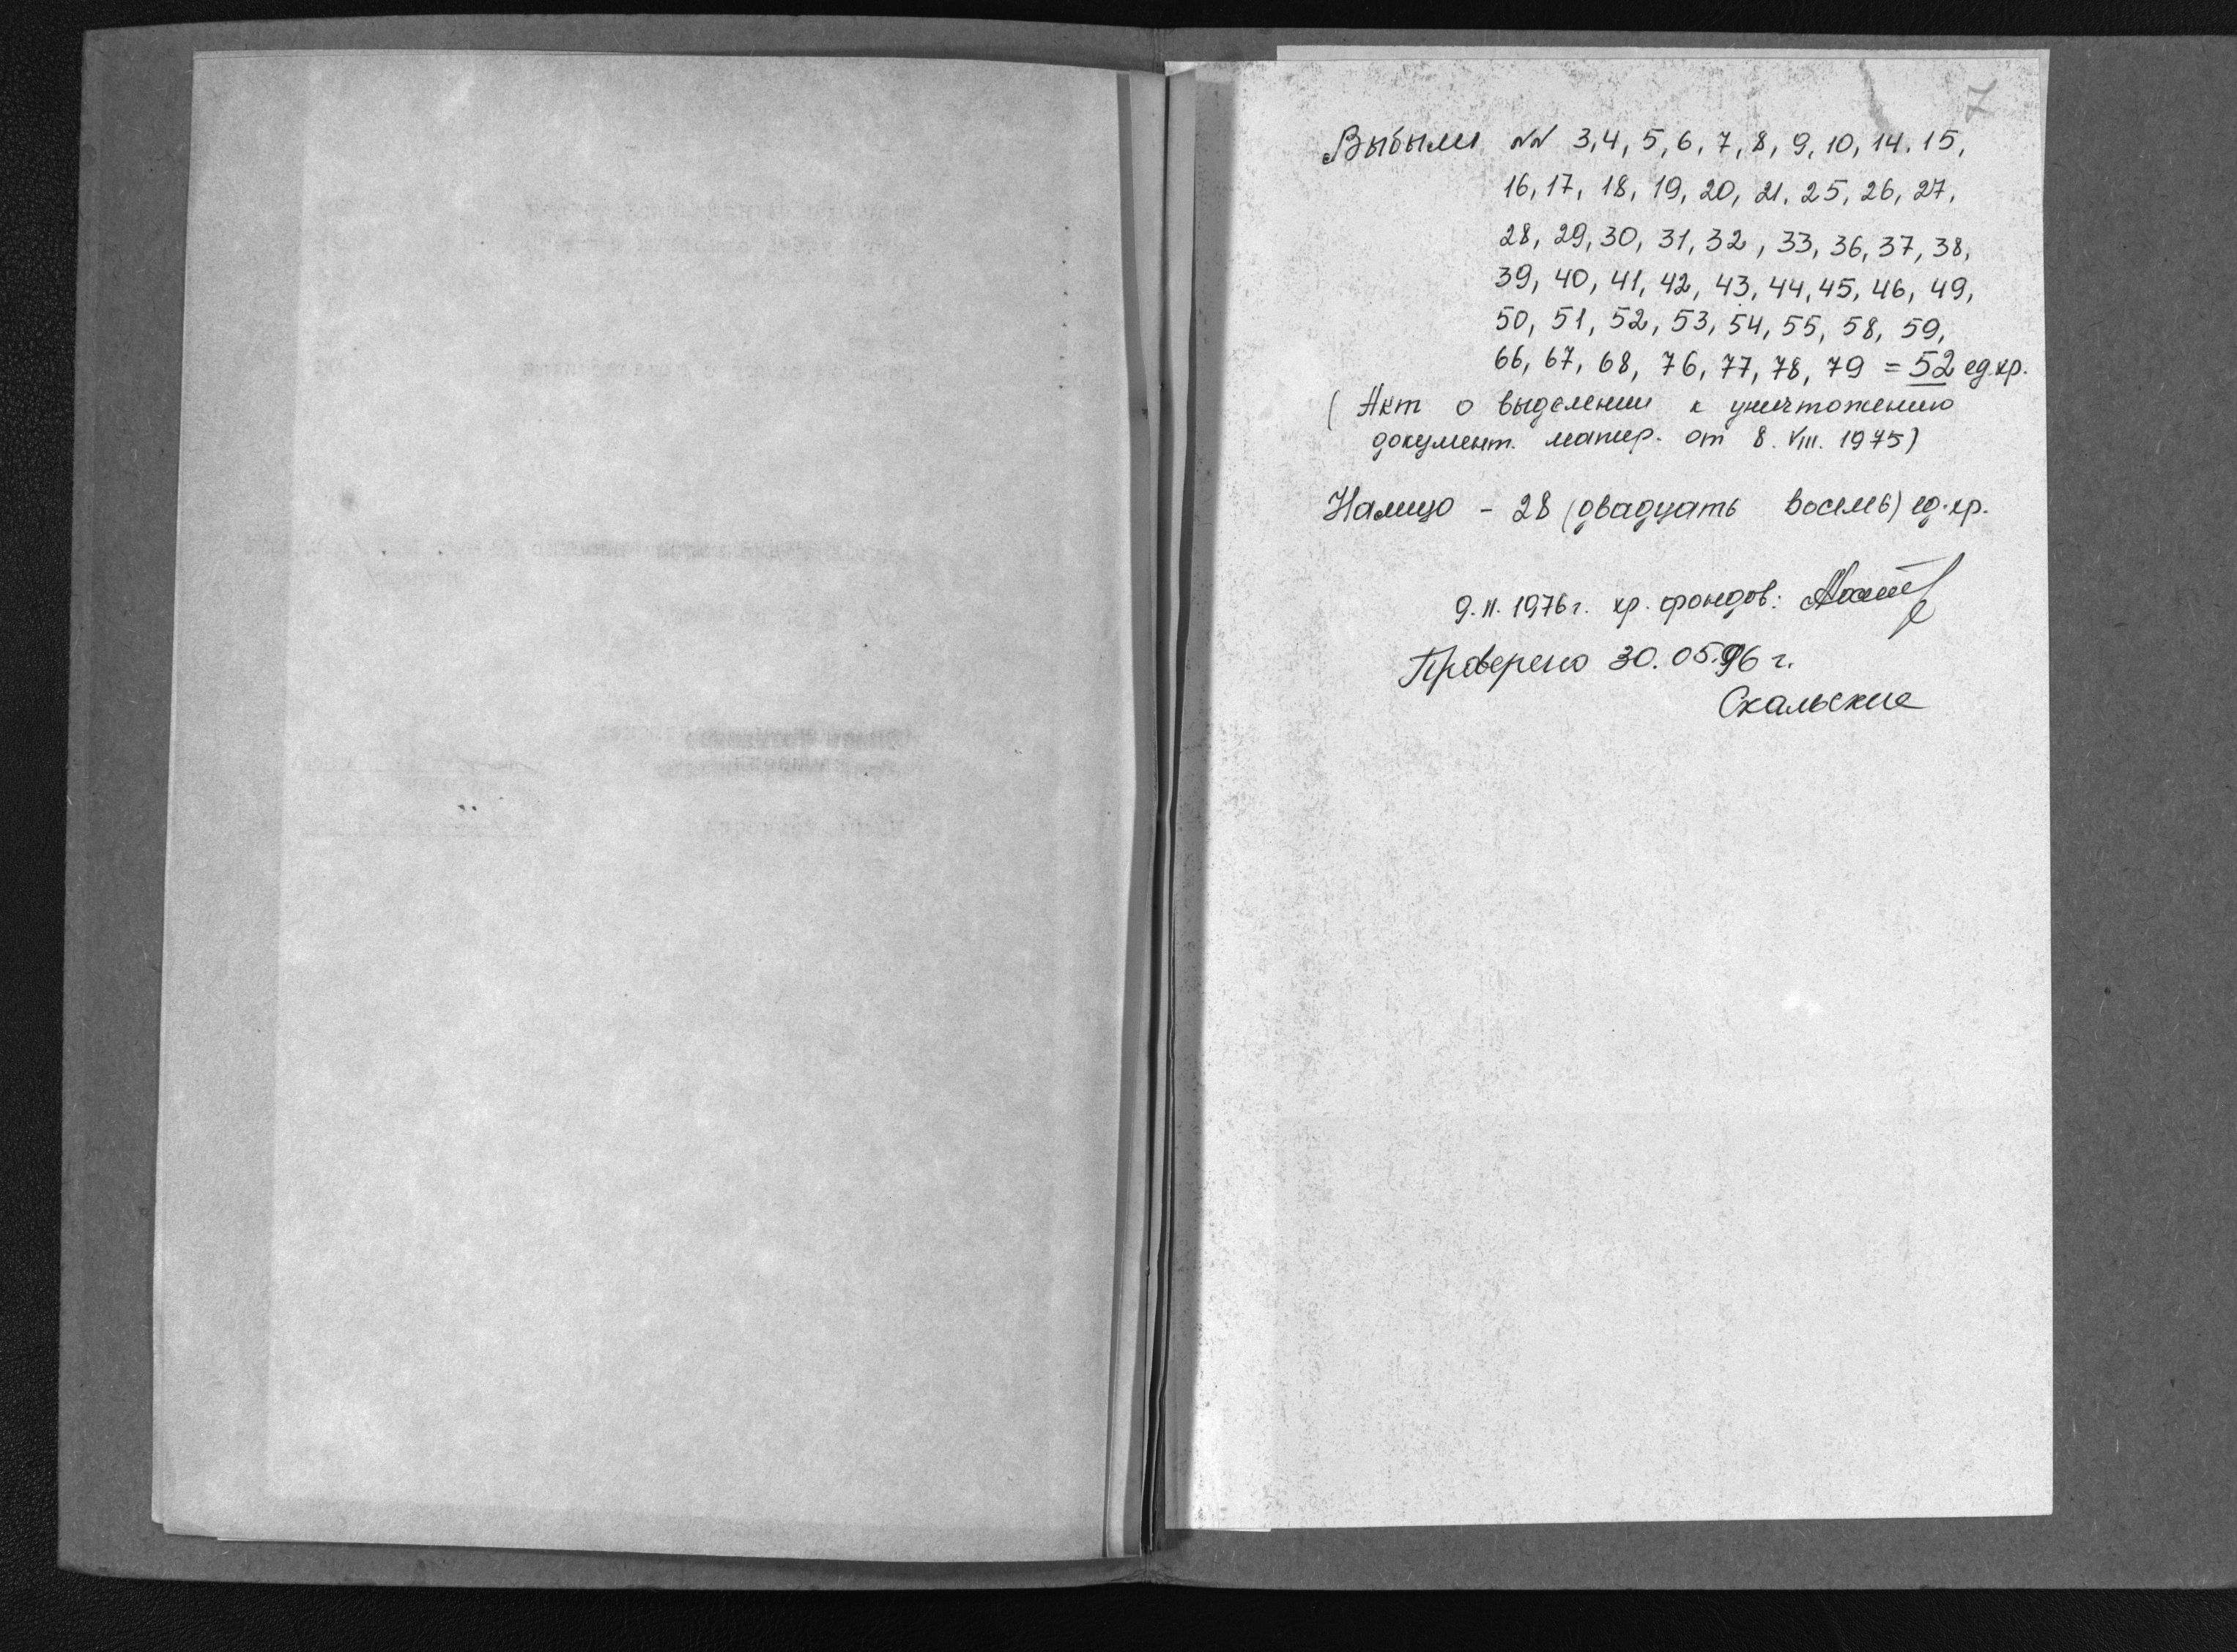 7
Выбыли NN 3,4,5,6,7,8,9,10,14.15,
16,17,18,19,20,21.25,26,27,
28,29,30,31,32,33,36,37,38,
39,40,41,42,43,44,45,46,49,
50,51,52,53,54,55,58,59,
66,67,68,76,77,78,79 = 52 ед.хр.
(Акт о выделении к уничтожению
документ. матер. от 8. VIII. 1975)
Налицо - 28 (двадцать восемь) ед.хр.
9.II.1976г. хр. фондов:
Проверено 30.05.96 г.